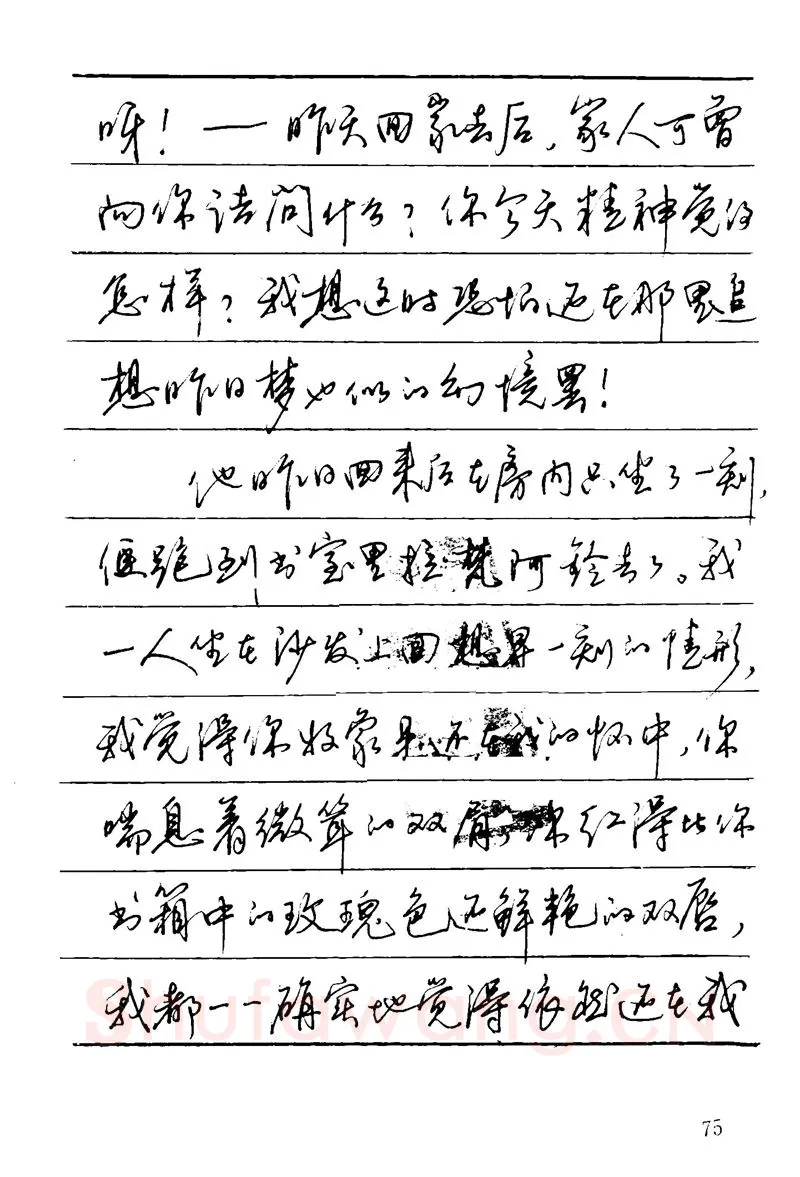 呀！——昨天回家去后，家人可曾
向你诘问什么？你今天精神觉得
怎样？我想这时恐怕还在那里追
想昨日梦也似的幻境罢！
他昨日回来后在房内只坐了一刻，
便跑到书室里拉梵阿铃去了。我
一人坐在沙发上回想早一刻的情形，
我觉得你好象是还在我的怀中，你
喘息着微耸的双肩，你红得比你
书籍中的玫瑰色还鲜艳的双唇，
我都一一确实地觉得依然还在我
Shufawang.CN
75